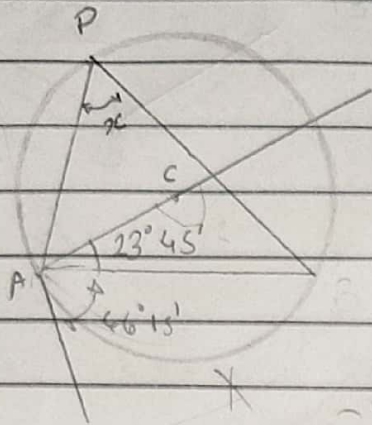 P
x
C
23° 45'
A
66° 15'
B